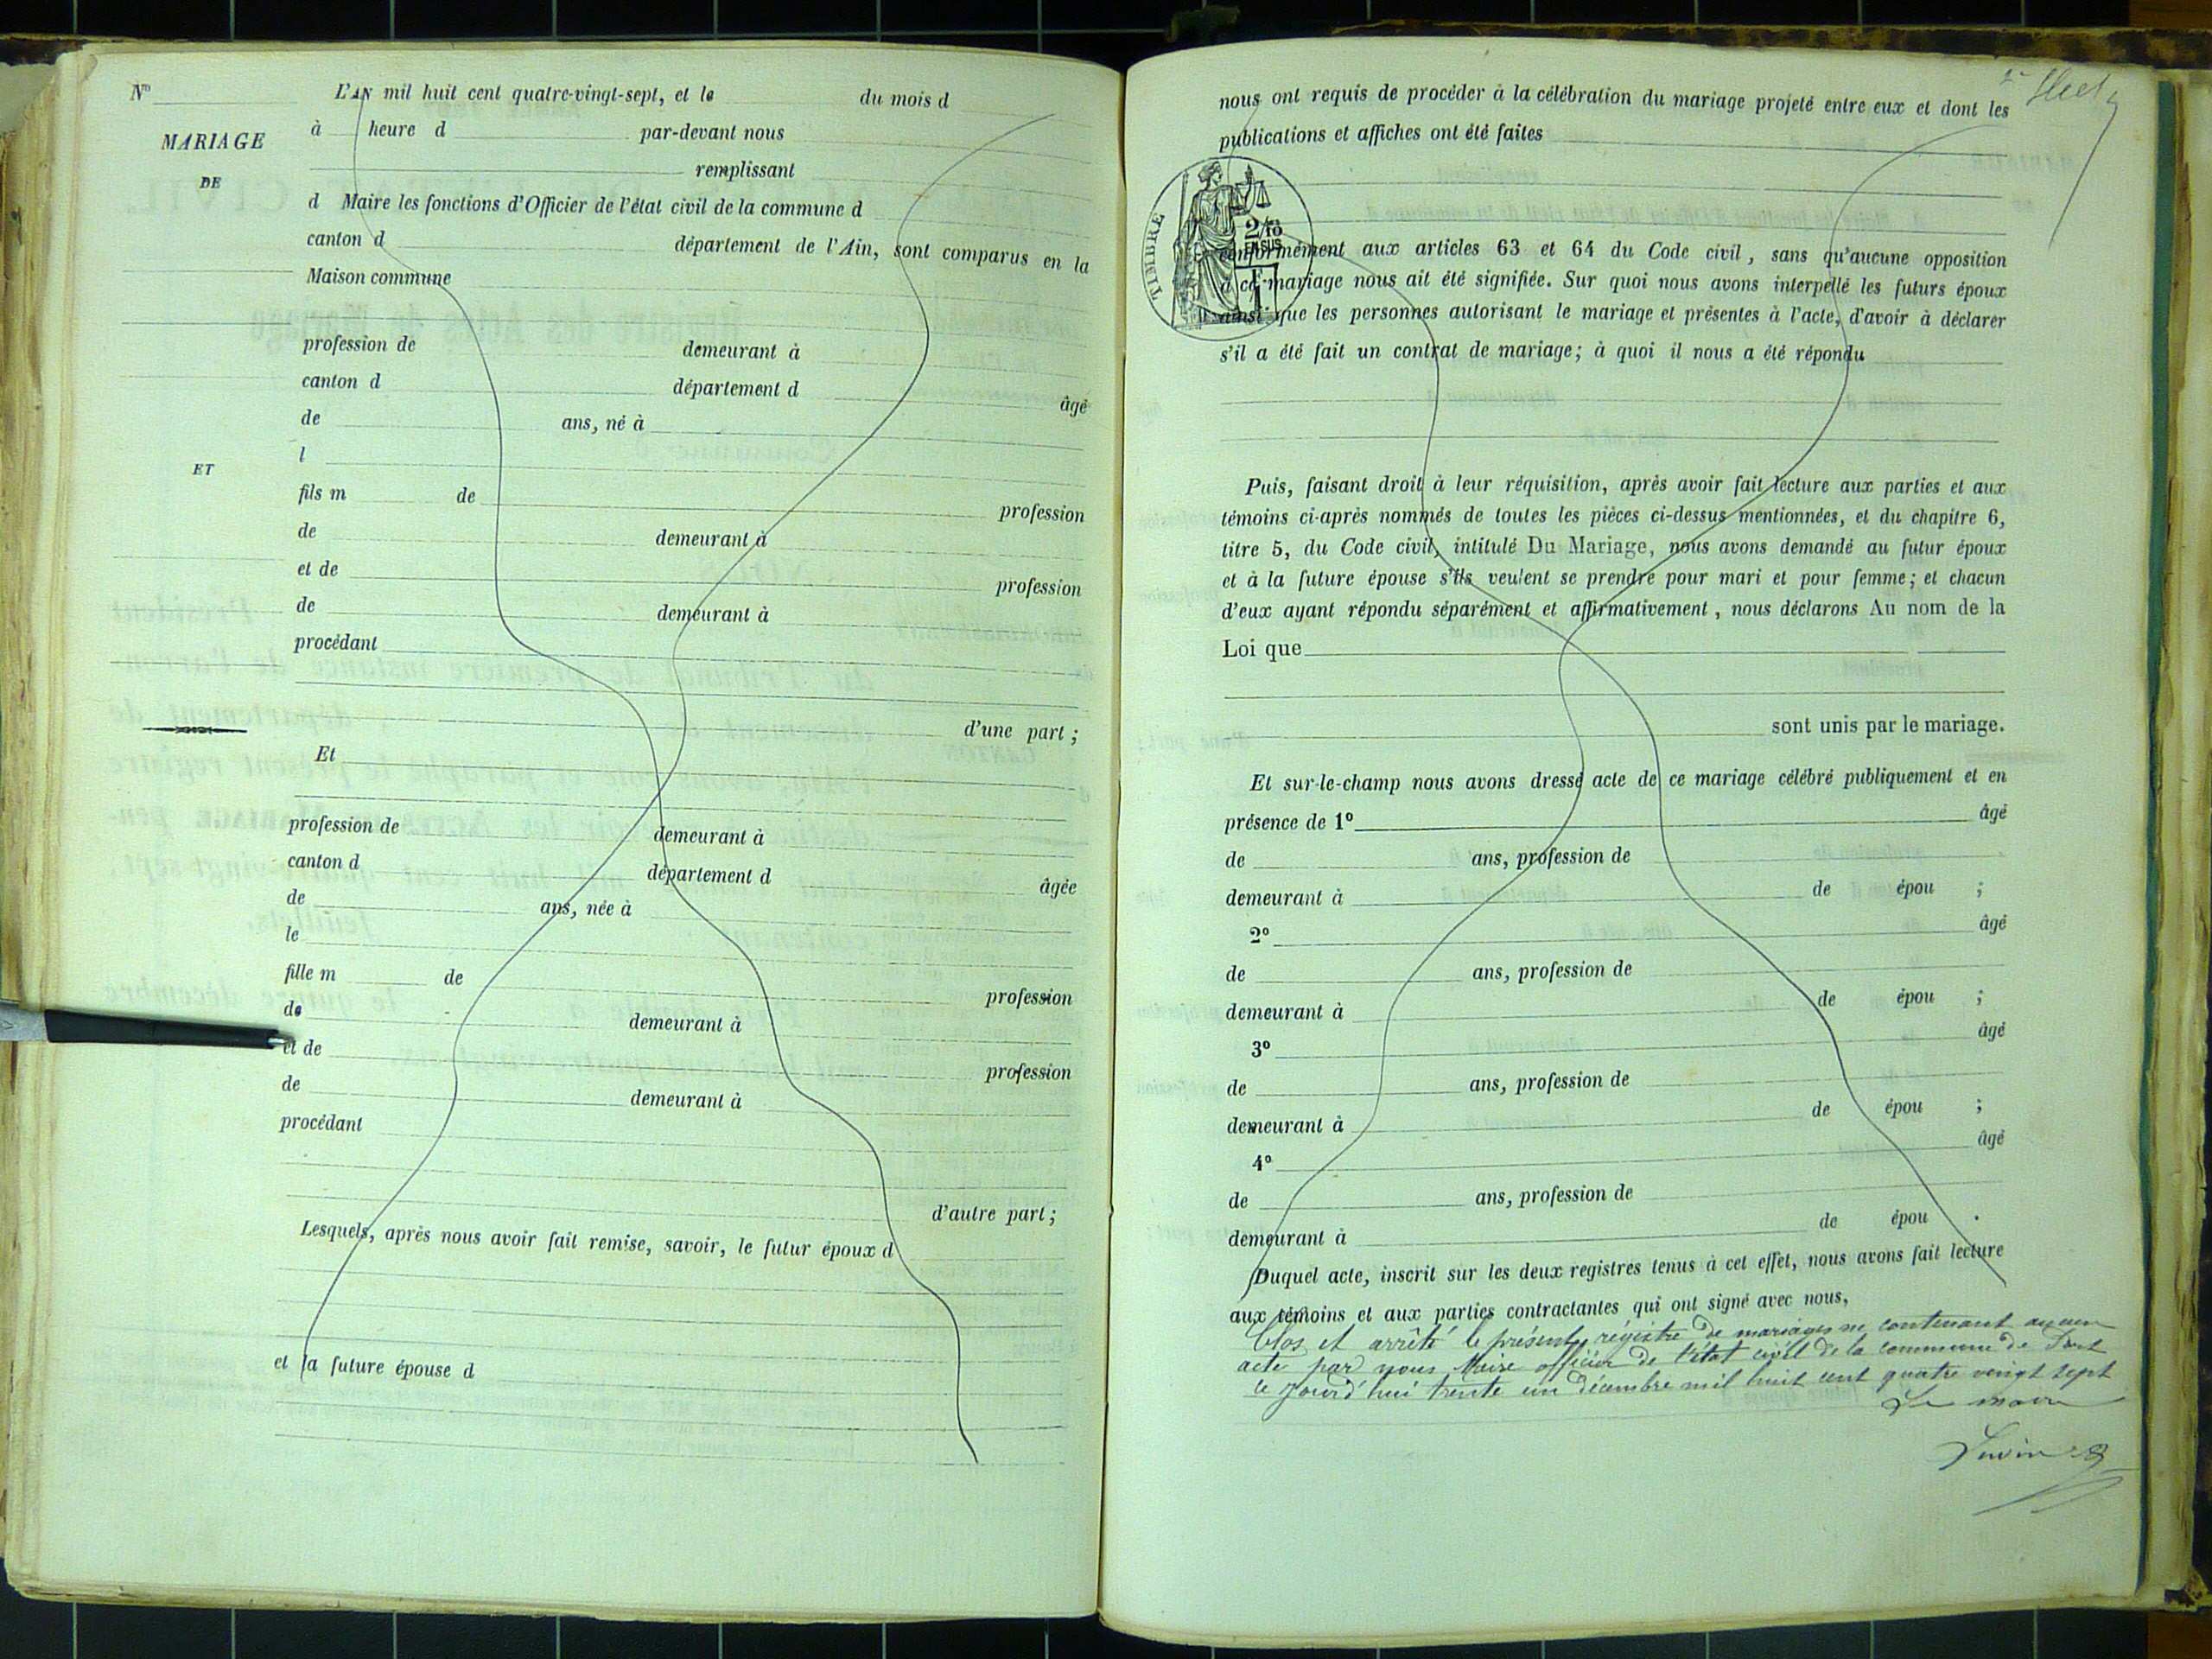 No
L'AN mil huit cent quatre-vingt-sept, et le du mois d
à heure d par-devant nous
MARIAGE
DE
remplissant
d Maire les fonctions d'Officier de l'état civil de la commune d
canton d département de l'Ain, sont comparus en la
Maison commune
profession de demeurant à
canton d département d âgé
de ans, né à
l
ET
fils m de profession
de demeurant à
et de profession
de demeurant à
procédant
d'une part ;
Et
profession de demeurant à
canton d département d âgée
de ans, née à
le
fille m de profession
de demeurant à
et de profession
de demeurant à
procédant
d'autre part ;
Lesquels, après nous avoir fait remise, savoir, le futur époux d
et la future épouse d
nous ont requis de procéder à la célébration du mariage projeté entre eux et dont les
publications et affiches ont été faites
TIMBRE
2/10
EN SUS
conformément aux articles 63 et 64 du Code civil, sans qu'aucune opposition
à ce mariage nous ait été signifiée. Sur quoi nous avons interpellé les futurs époux
ainsi que les personnes autorisant le mariage et présentes à l'acte, d'avoir à déclarer
s'il a été fait un contrat de mariage ; à quoi il nous a été répondu
Puis, faisant droit à leur réquisition, après avoir fait lecture aux parties et aux
témoins ci-après nommés de toutes les pièces ci-dessus mentionnées, et du chapitre 6,
titre 5, du Code civil, intitulé Du Mariage, nous avons demandé au futur époux
et à la future épouse s'ils veulent se prendre pour mari et pour femme ; et chacun
d'eux ayant répondu séparément et affirmativement, nous déclarons Au nom de la
Loi que
sont unis par le mariage.
Et sur-le-champ nous avons dressé acte de ce mariage célébré publiquement et en
présence de 1° âgé
de ans, profession de
demeurant à de épou ;
2° âgé
de ans, profession de
demeurant à de épou ;
3° âgé
de ans, profession de
demeurant à de épou ;
4° âgé
de ans, profession de
demeurant à de épou .
Duquel acte, inscrit sur les deux registres tenus à cet effet, nous avons fait lecture
aux témoins et aux parties contractantes qui ont signé avec nous,
Clos et arrêté le présent régistre de mariages ne contenant aucun
acte par nous Maire officier de l'état civil de la commune de
ce jourd'hui trente un décembre mil huit cent quatre vingt sept
Le maire